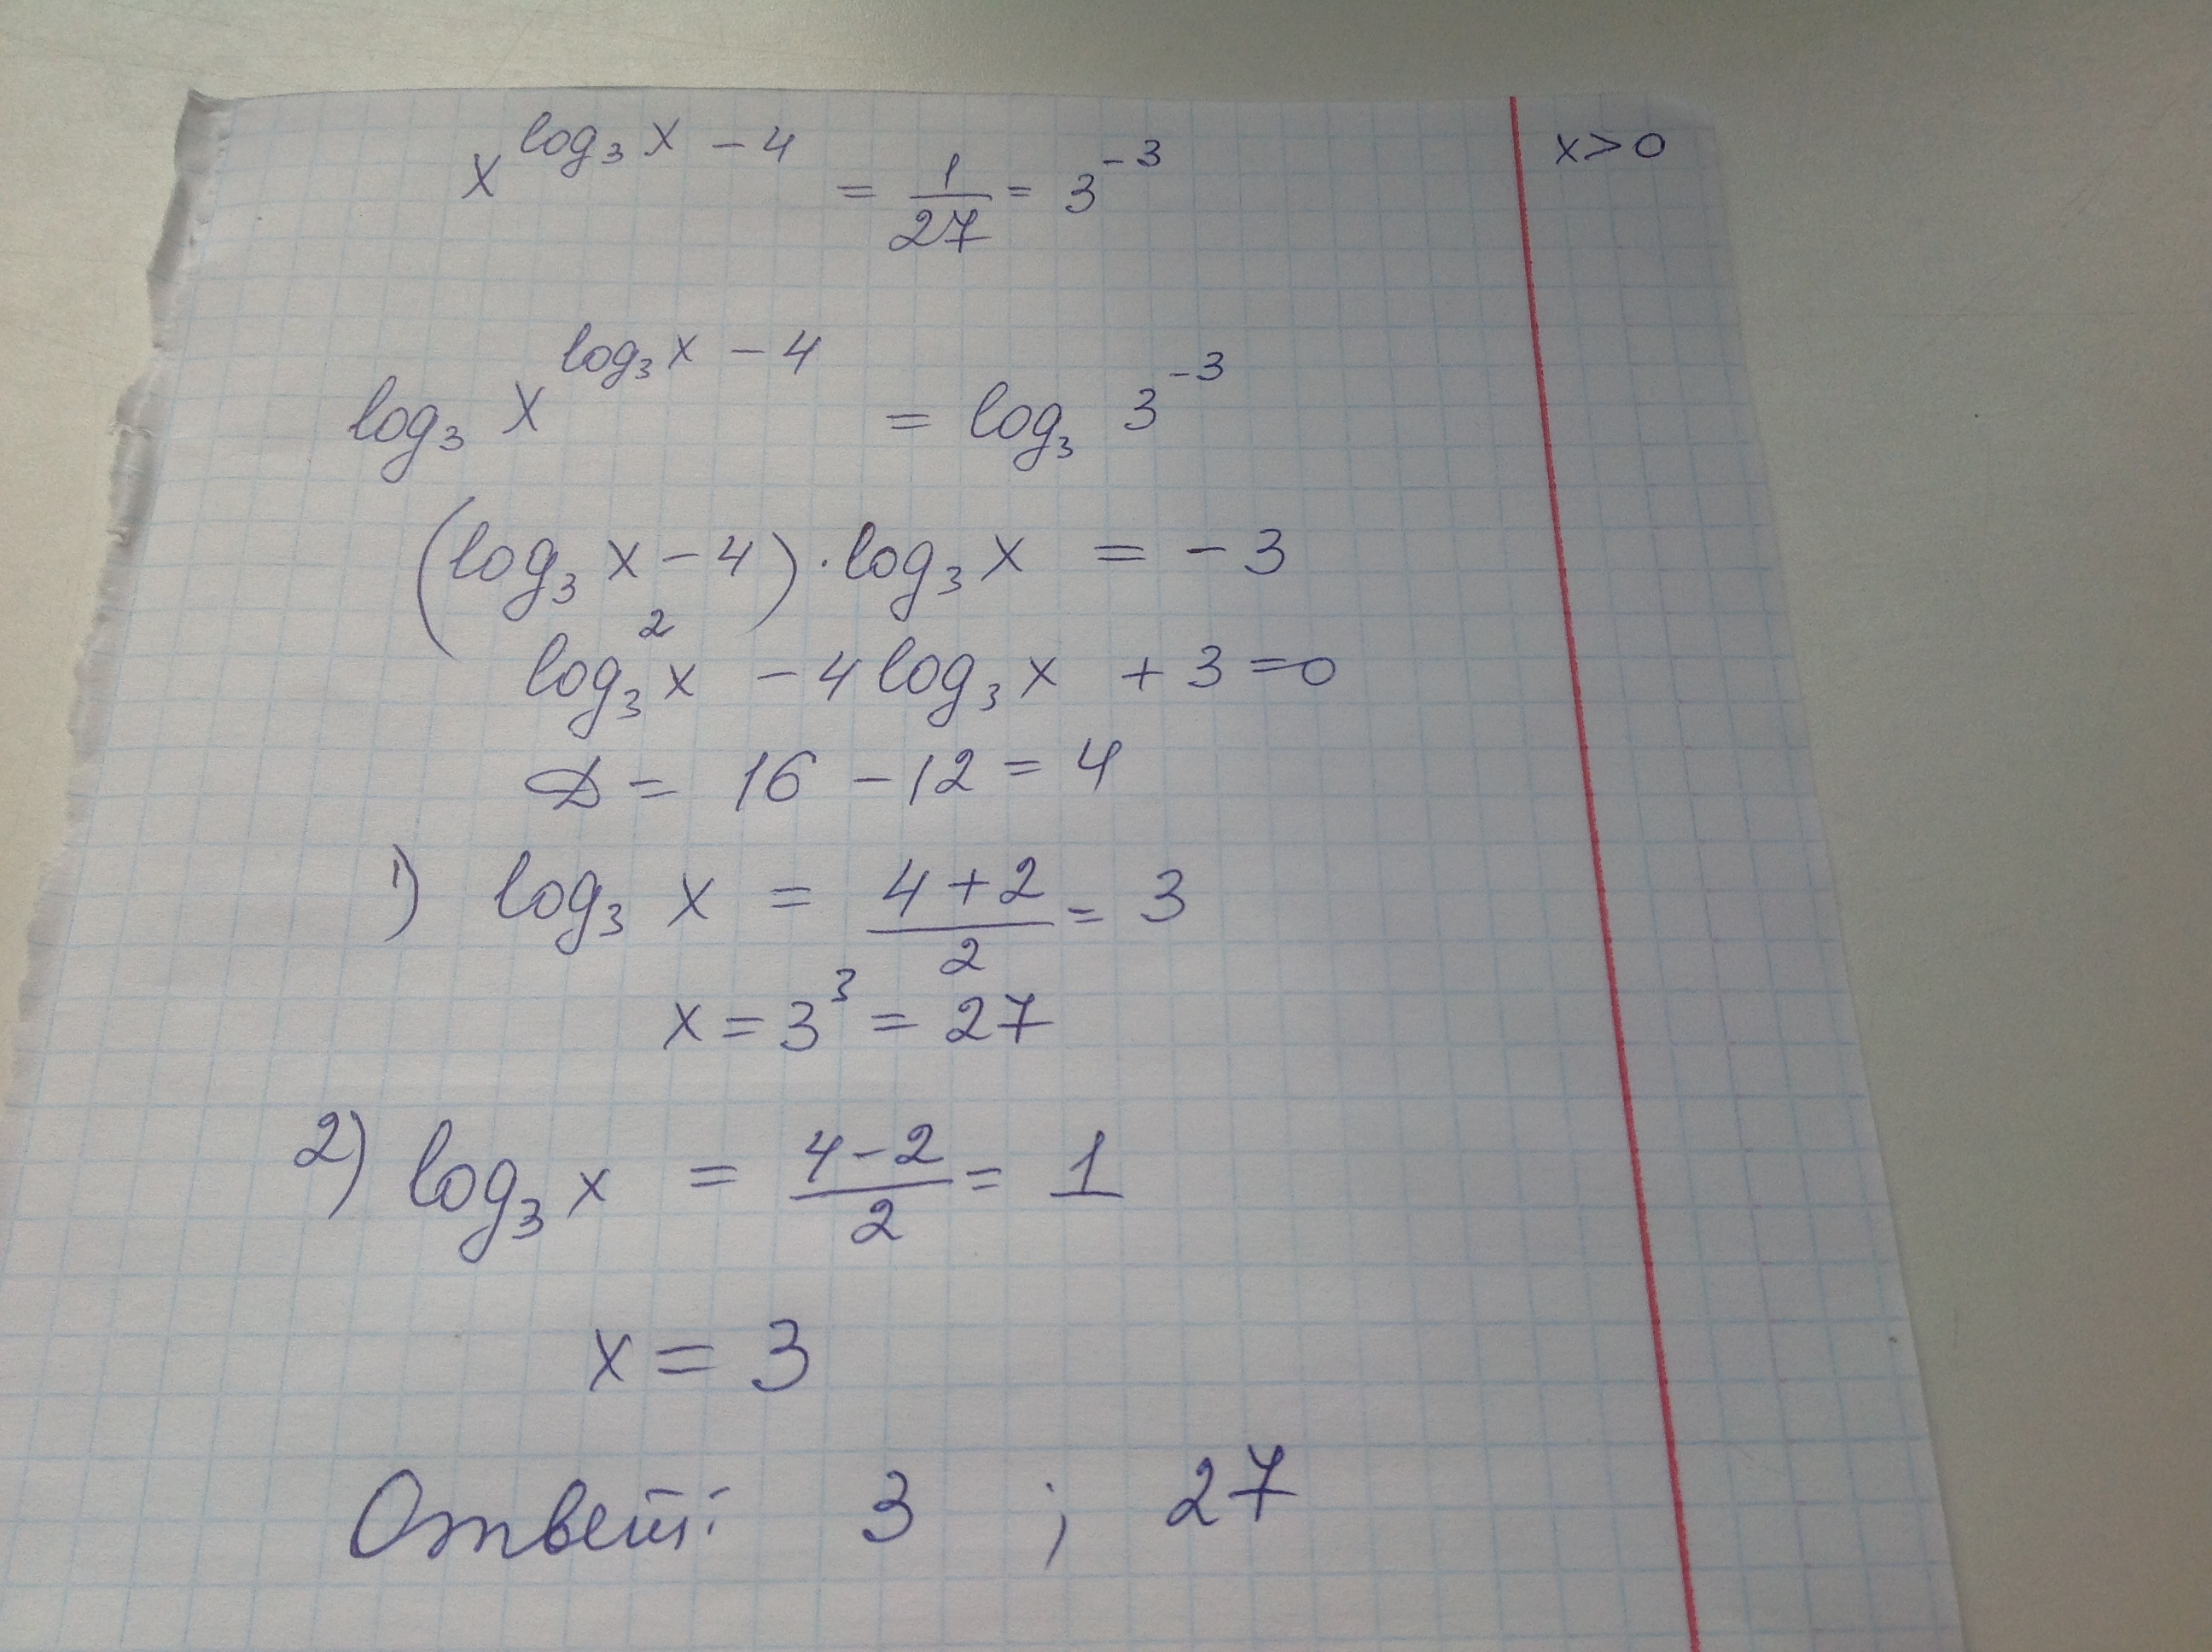 x^(log₃ x − 4) = 1/27 = 3^(−3)
x > 0
log₃ x^(log₃ x − 4) = log₃ 3^(−3)
(log₃ x − 4) · log₃ x = −3
log₃² x − 4 log₃ x + 3 = 0
D = 16 − 12 = 4
1) log₃ x = (4 + 2)/2 = 3
x = 3³ = 27
2) log₃ x = (4 − 2)/2 = 1
x = 3
Ответ: 3 ; 27